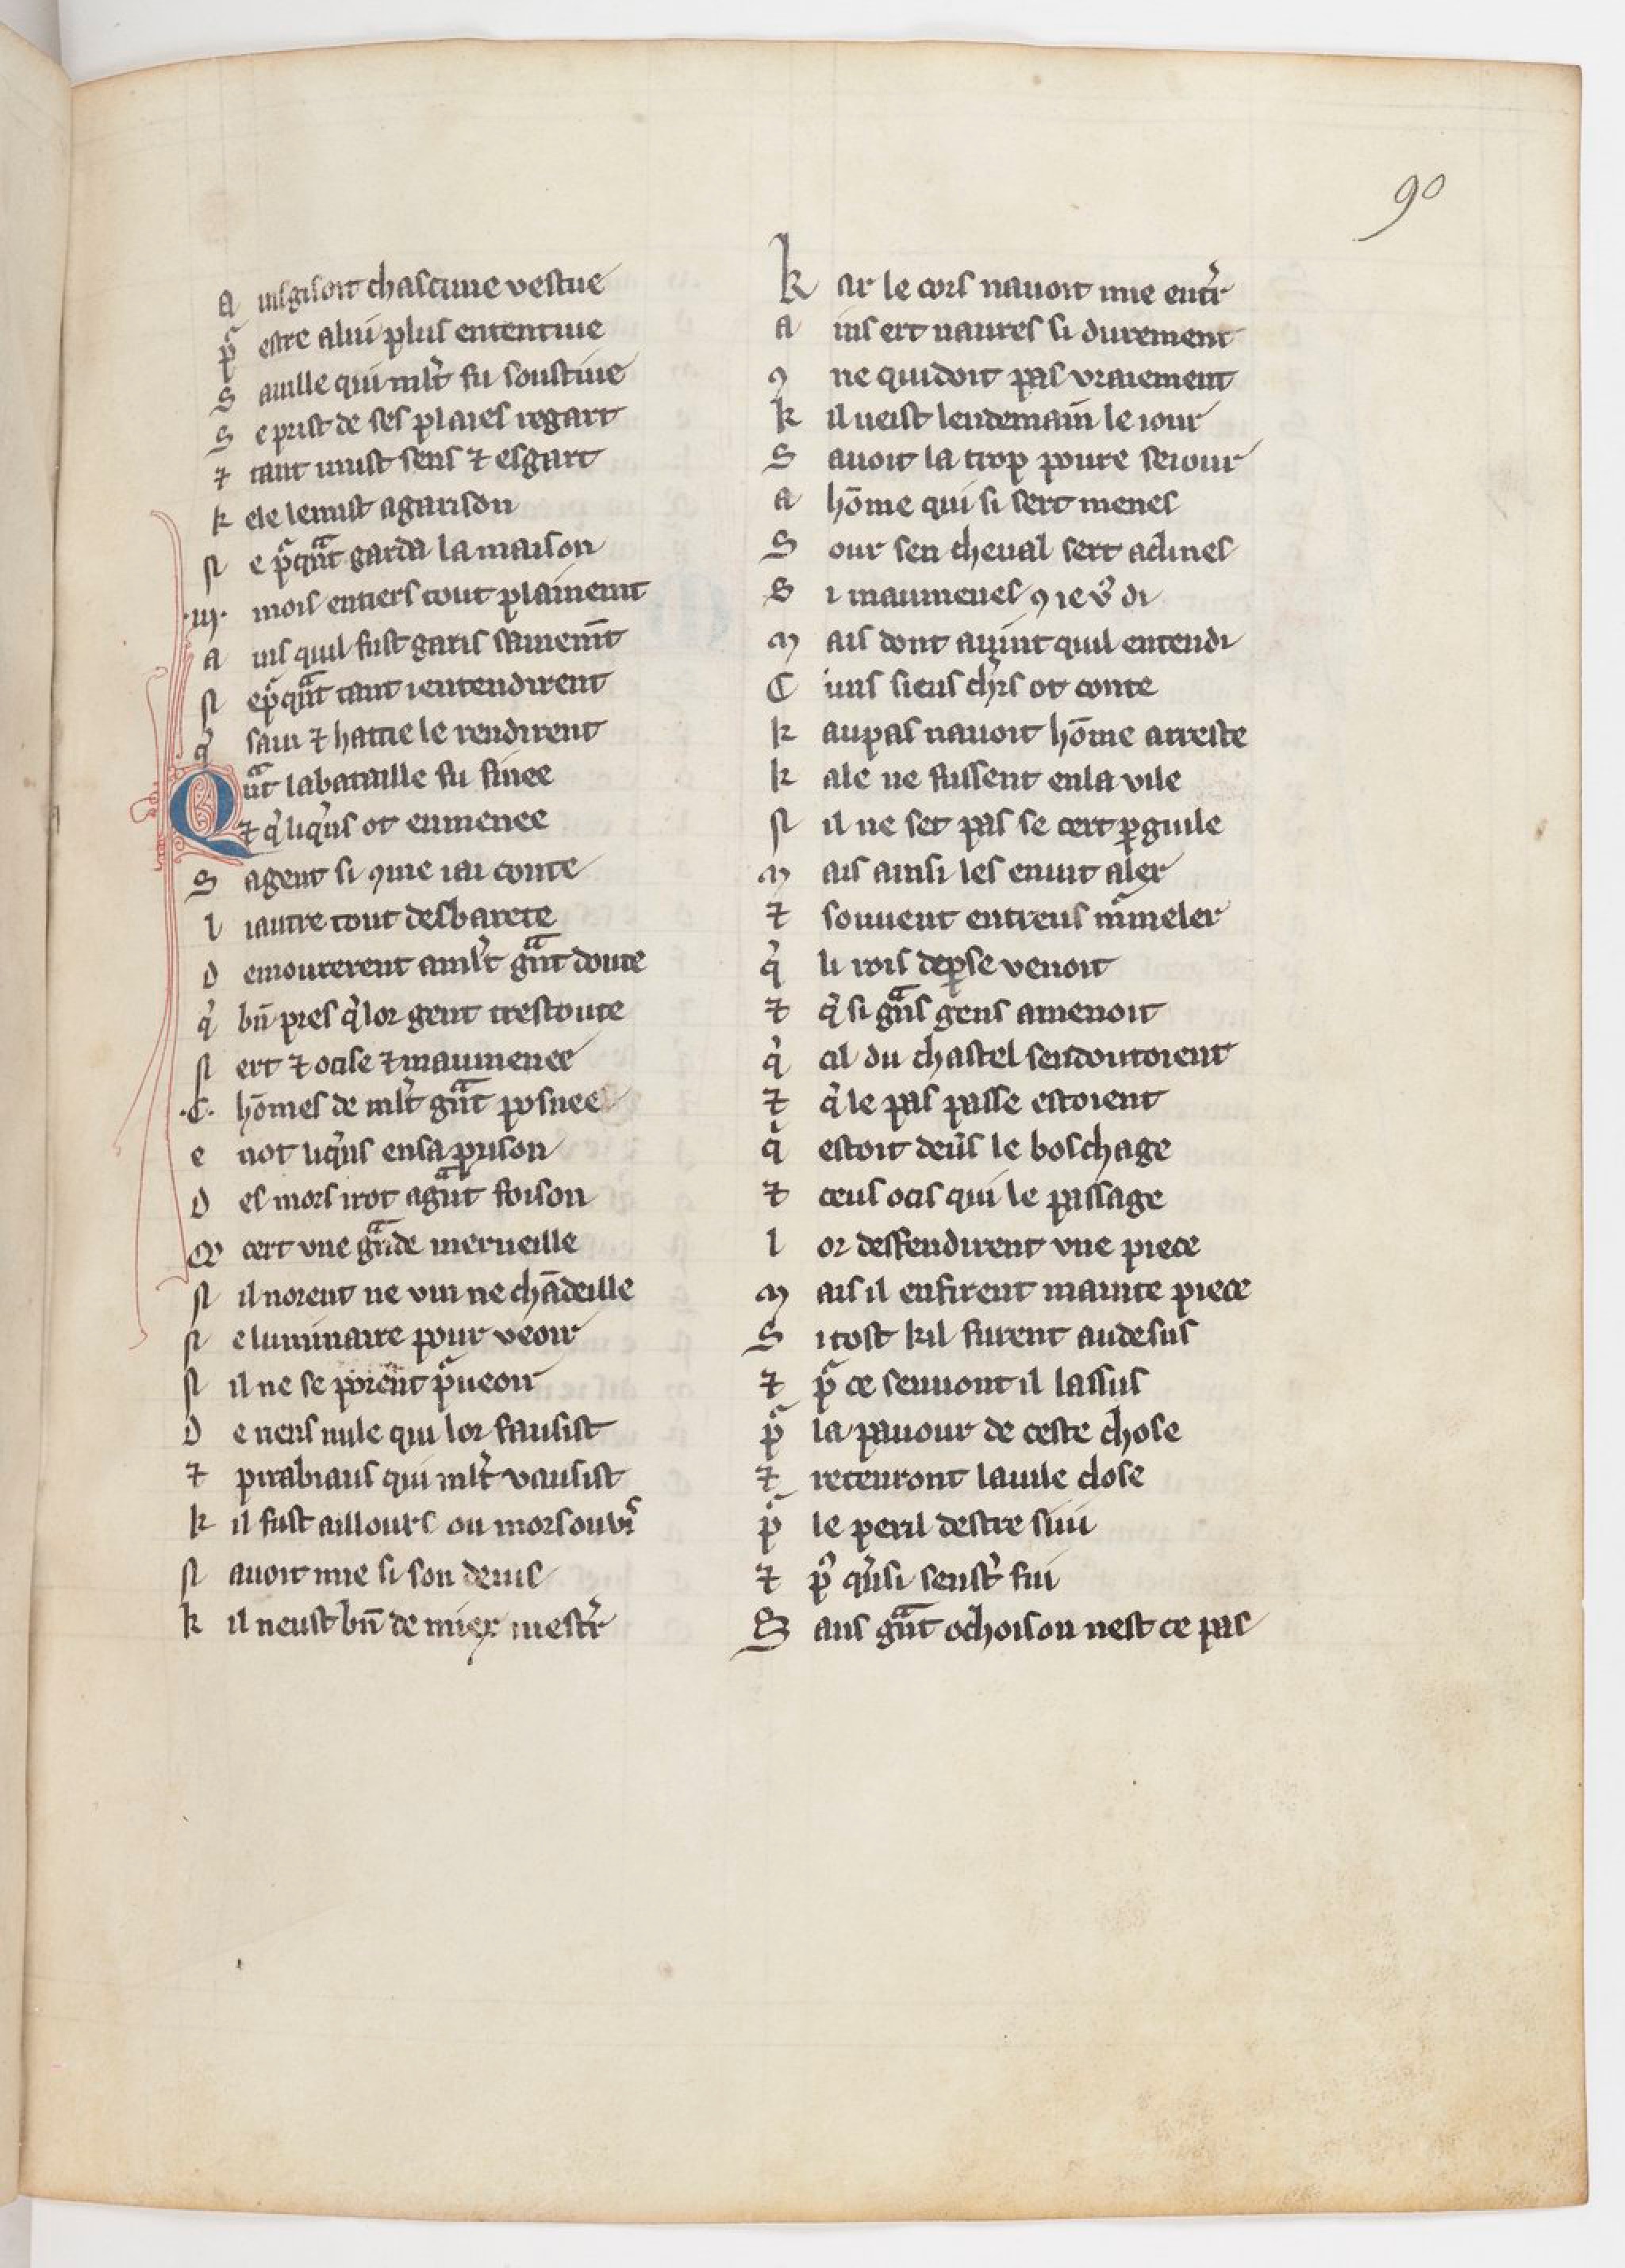 90
A insgisoit chascune vestue
p̾ estre alui plus ententiue
S auille qui ml̾t fu soustiue
S e prist de ses plaies regart
⁊ tant imist sens ⁊ esgart
k ele lemist agarison
N e p̾qͣnt garda la maison
.iij. mois entiers tout plainemt
A ins quil fust garis sainemt̄
N ep̾qͣnt tant ientendirent
q̾ sain ⁊ haitie le rendirent
Qͣnt labataille fu finee
⁊ q̾ liq̾ns ot enmenee
S agent si ꝯme iai conte
l iautre tout desbarete
D emourerent aml̾t gͣnt doute
q̾ bn̄ pres q̾ lor gent trestoute
N ert ⁊ ocise ⁊ maumenee
.C. hōmes de ml̾t gͣnt posnee
e not liq̾ns ensa prison
D es mors irot agͣnt foison
Mͦ cert vne gͣnde merueille
N il norent ne vin ne chādeille
N e luminaire pour veoir
N il ne se porēnt p̾ueoir
D e riens nule qui lor fausist
⁊ pirabiaus qui ml̾t vausist
k il fust aillours ou mors ou vis
N auoit mie si son deuis
k il neust bn̄ de miex mestr̾
k ar le cors nauoit mie entr̾
A ins ert naures si durement
ꝯ ne quidoit pas vraiement
k il ueist lendemain le iour
S auoit la trop poure seiour
A hōme qui si sert menes
S our sen cheual sert aclines
S i maumenes ꝯ ie vͦ di
M ais dont auint quil entendi
C 'uns siens ch̾rs ot conte
k aupas nauoit hōme arreste
k ale ne fussent enla vile
N il ne set pas se cert ꝑ guile
M ais ainsi les enuit aler
⁊ souuent entreus mͣmeler
q̾ li rois deꝑse venoit
⁊ q̾ si gͣns gens amenoit
q̾ cil du chastel sendoutoient
⁊ q̾ le pas passe estoient
q̾ estoit deu̾s le boschage
⁊ ceus ocis qui le passage
l or deffendirent vne piece
M ais il enfirent mainte piece
S itost kil furent audesus
⁊ p̾ ce senuont il lassus
p̾ la paour de ceste chose
⁊ retenront lauile close
p̾ le peril destre siui
⁊ pͦ q̾nsi senst̾ fui
S ans gͣnt ochoison nest ce pas